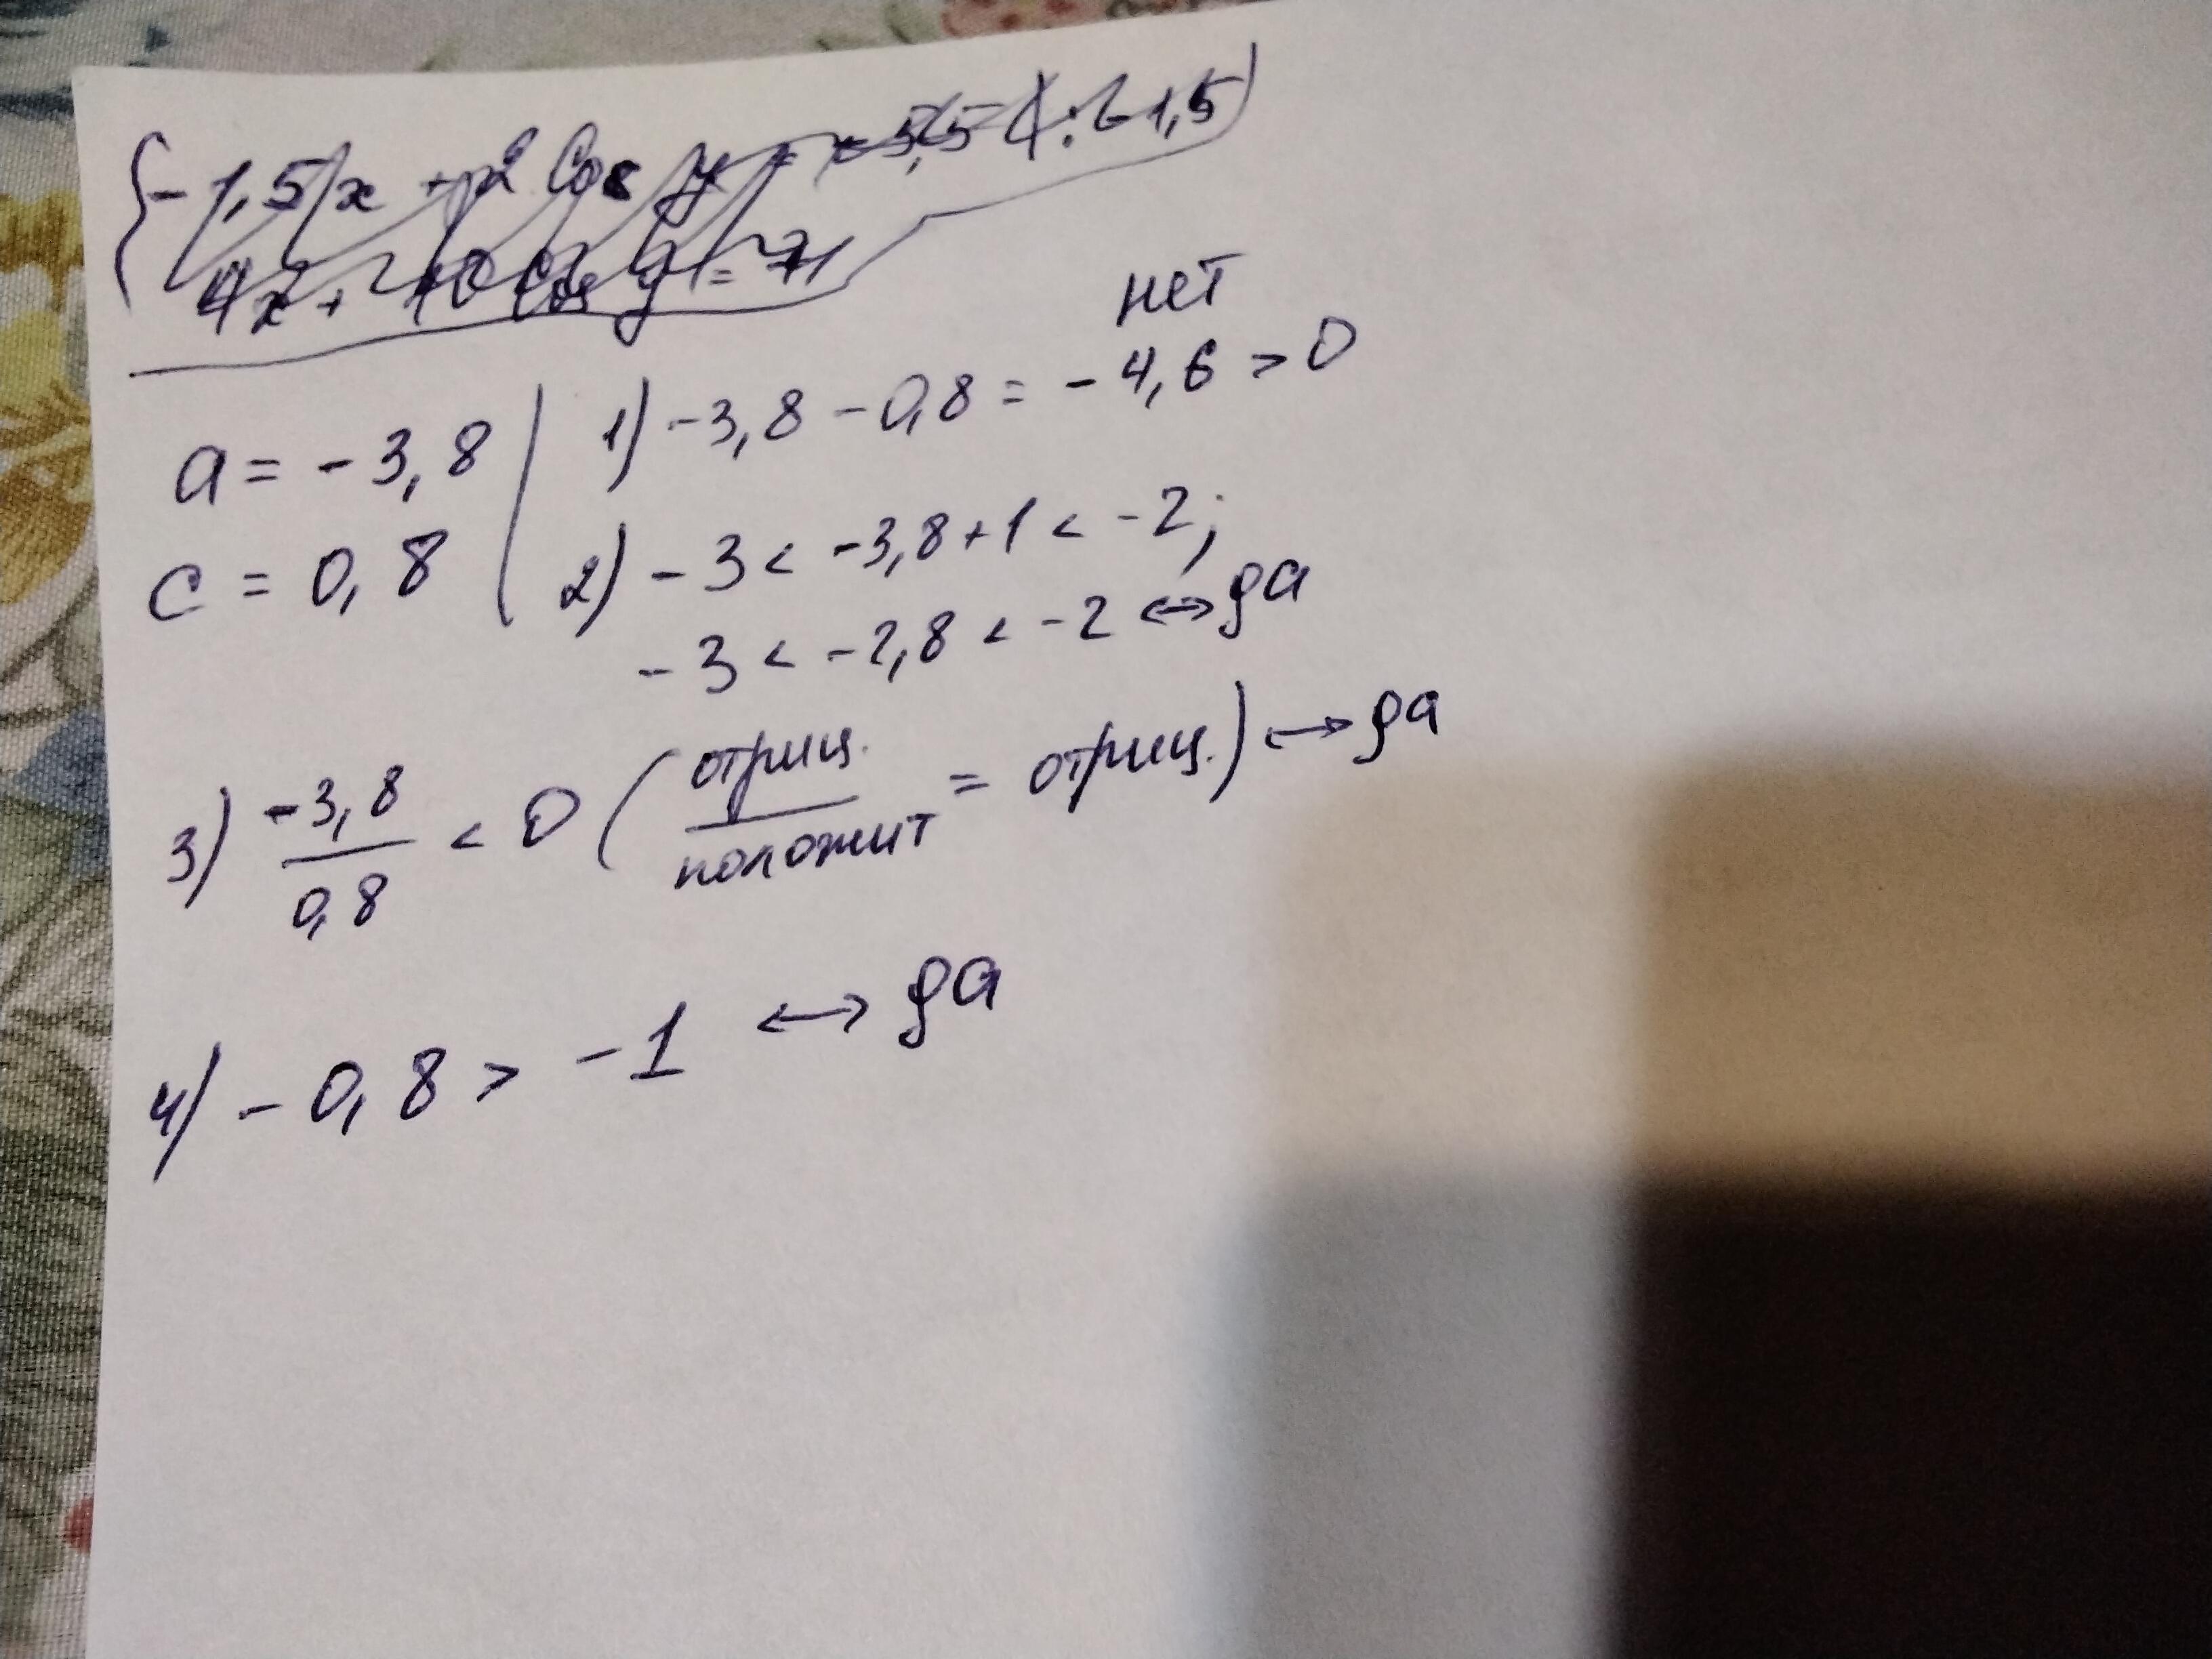 a = -3,8
c = 0,8
1) -3,8 - 0,8 = -4,6 > 0
нет
2) -3 < -3,8+1 < -2;
-3 < -2,8 < -2 ↔ да
3) -3,8/0,8 < 0 (отриц./положит = отриц.) ↔ да
4) -0,8 > -1 ↔ да